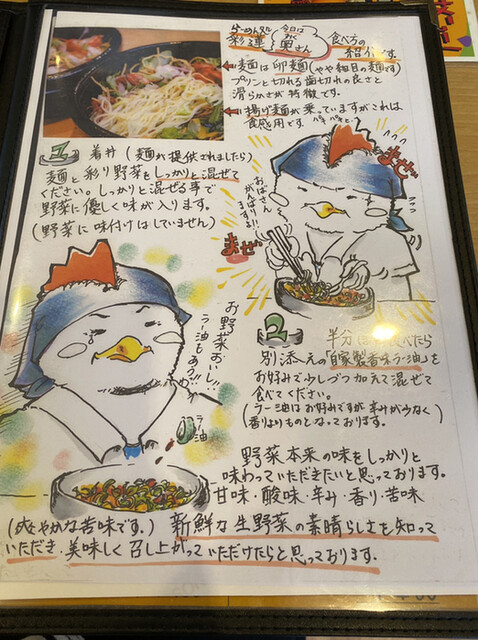 らーめん処
彩蓮
今日は
奥さん
食べ方の
紹介です
麺は卵麺(やや細目の麺です)
プリンと切れる歯切れの良さと
滑らかさが特徴です。
揚げ麺が乗っていますがこれは
食感用です
1 着丼(麺が提供されましたら)
麺と彩り野菜をしっかりと混ぜて
ください。しっかりと混ぜる事で
野菜に優しく味が入ります。
(野菜に味付けはしていません)
まぜ
おばさん
がんばり!!
まする!!
まぜ
お野菜おいし!!
ラー油もあうッ!!
ラー油
2 半分ほど食べたら
別添えの「自家製香味ラー油」を
お好みで少しづつ加えて混ぜて
食べてください。
(ラー油はお好みですが辛みが少なく
香りよりものとなっております。)
野菜本来の味をしっかりと
味わっていただきたいと思っております。
甘味・酸味・辛み・香り・苦味
(爽やかな苦味です。)新鮮な生野菜の素晴らしさを知って
いただき、美味しく召し上がっていただけたらと思っております。